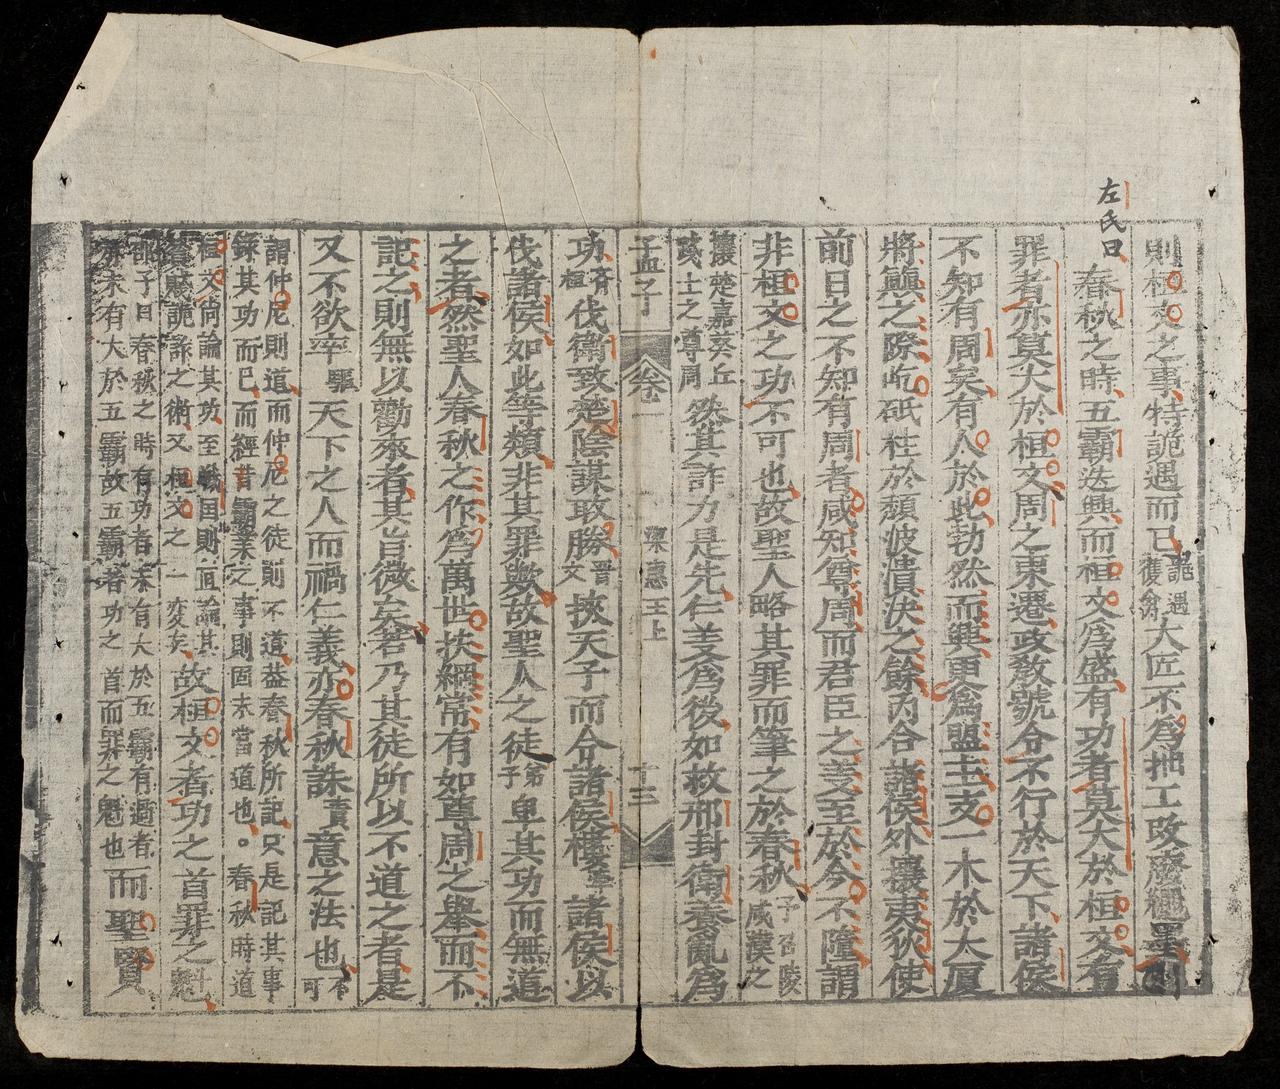 左氏曰
則桓文之事特詭遇而已詭遇獲禽大匠不爲拙工改廢繩墨則
春秋之時五霸迭興而桓文爲盛有功者莫大於桓文有
罪者亦莫大於桓文周之東遷政教號令不行於天下諸侯
不知有周矣有人於此勃然而興更爲盟主支一木於大厦
將顚之際屹砥柱於頹波潰決之餘內合諸侯外攘夷狄使
前日之不知有周者咸知尊周而君臣之義至於今不隳謂
非桓文之功不可也故聖人略其罪而筆之於春秋予召陵咸漢之
攘楚嘉葵丘踐土之尊周然其詐力是先仁義爲後如救邢封衛養亂爲
孟子 卷一 梁惠王上 十三
功齊桓伐衛致楚陰謀取勝晋文挾天子而令諸侯摟 諸侯以
伐諸侯如此等類非其罪歟故聖人之徒弟子卑其功而無道
之者然聖人春秋之作爲萬世扶綱常有如尊周之舉而不
記之則無以勸來者其旨微矣若乃其徒所以不道之者是
又不欲率驅天下之人而禍仁義亦春秋誅責意之法也
謂仲尼則道而仲尼之徒則不道盖春秋所記只是記其事
錄其功而已而經 霸業之事則固未當道也。春秋時道
桓文尚論其功至戰国則 論其
詭 之術又桓文之一変矣故桓文者功之首罪之魁
邵子曰春秋之時有功者未有大於五霸有過者
亦未有大於五霸故五霸者功之首而罪之魁也而聖賢